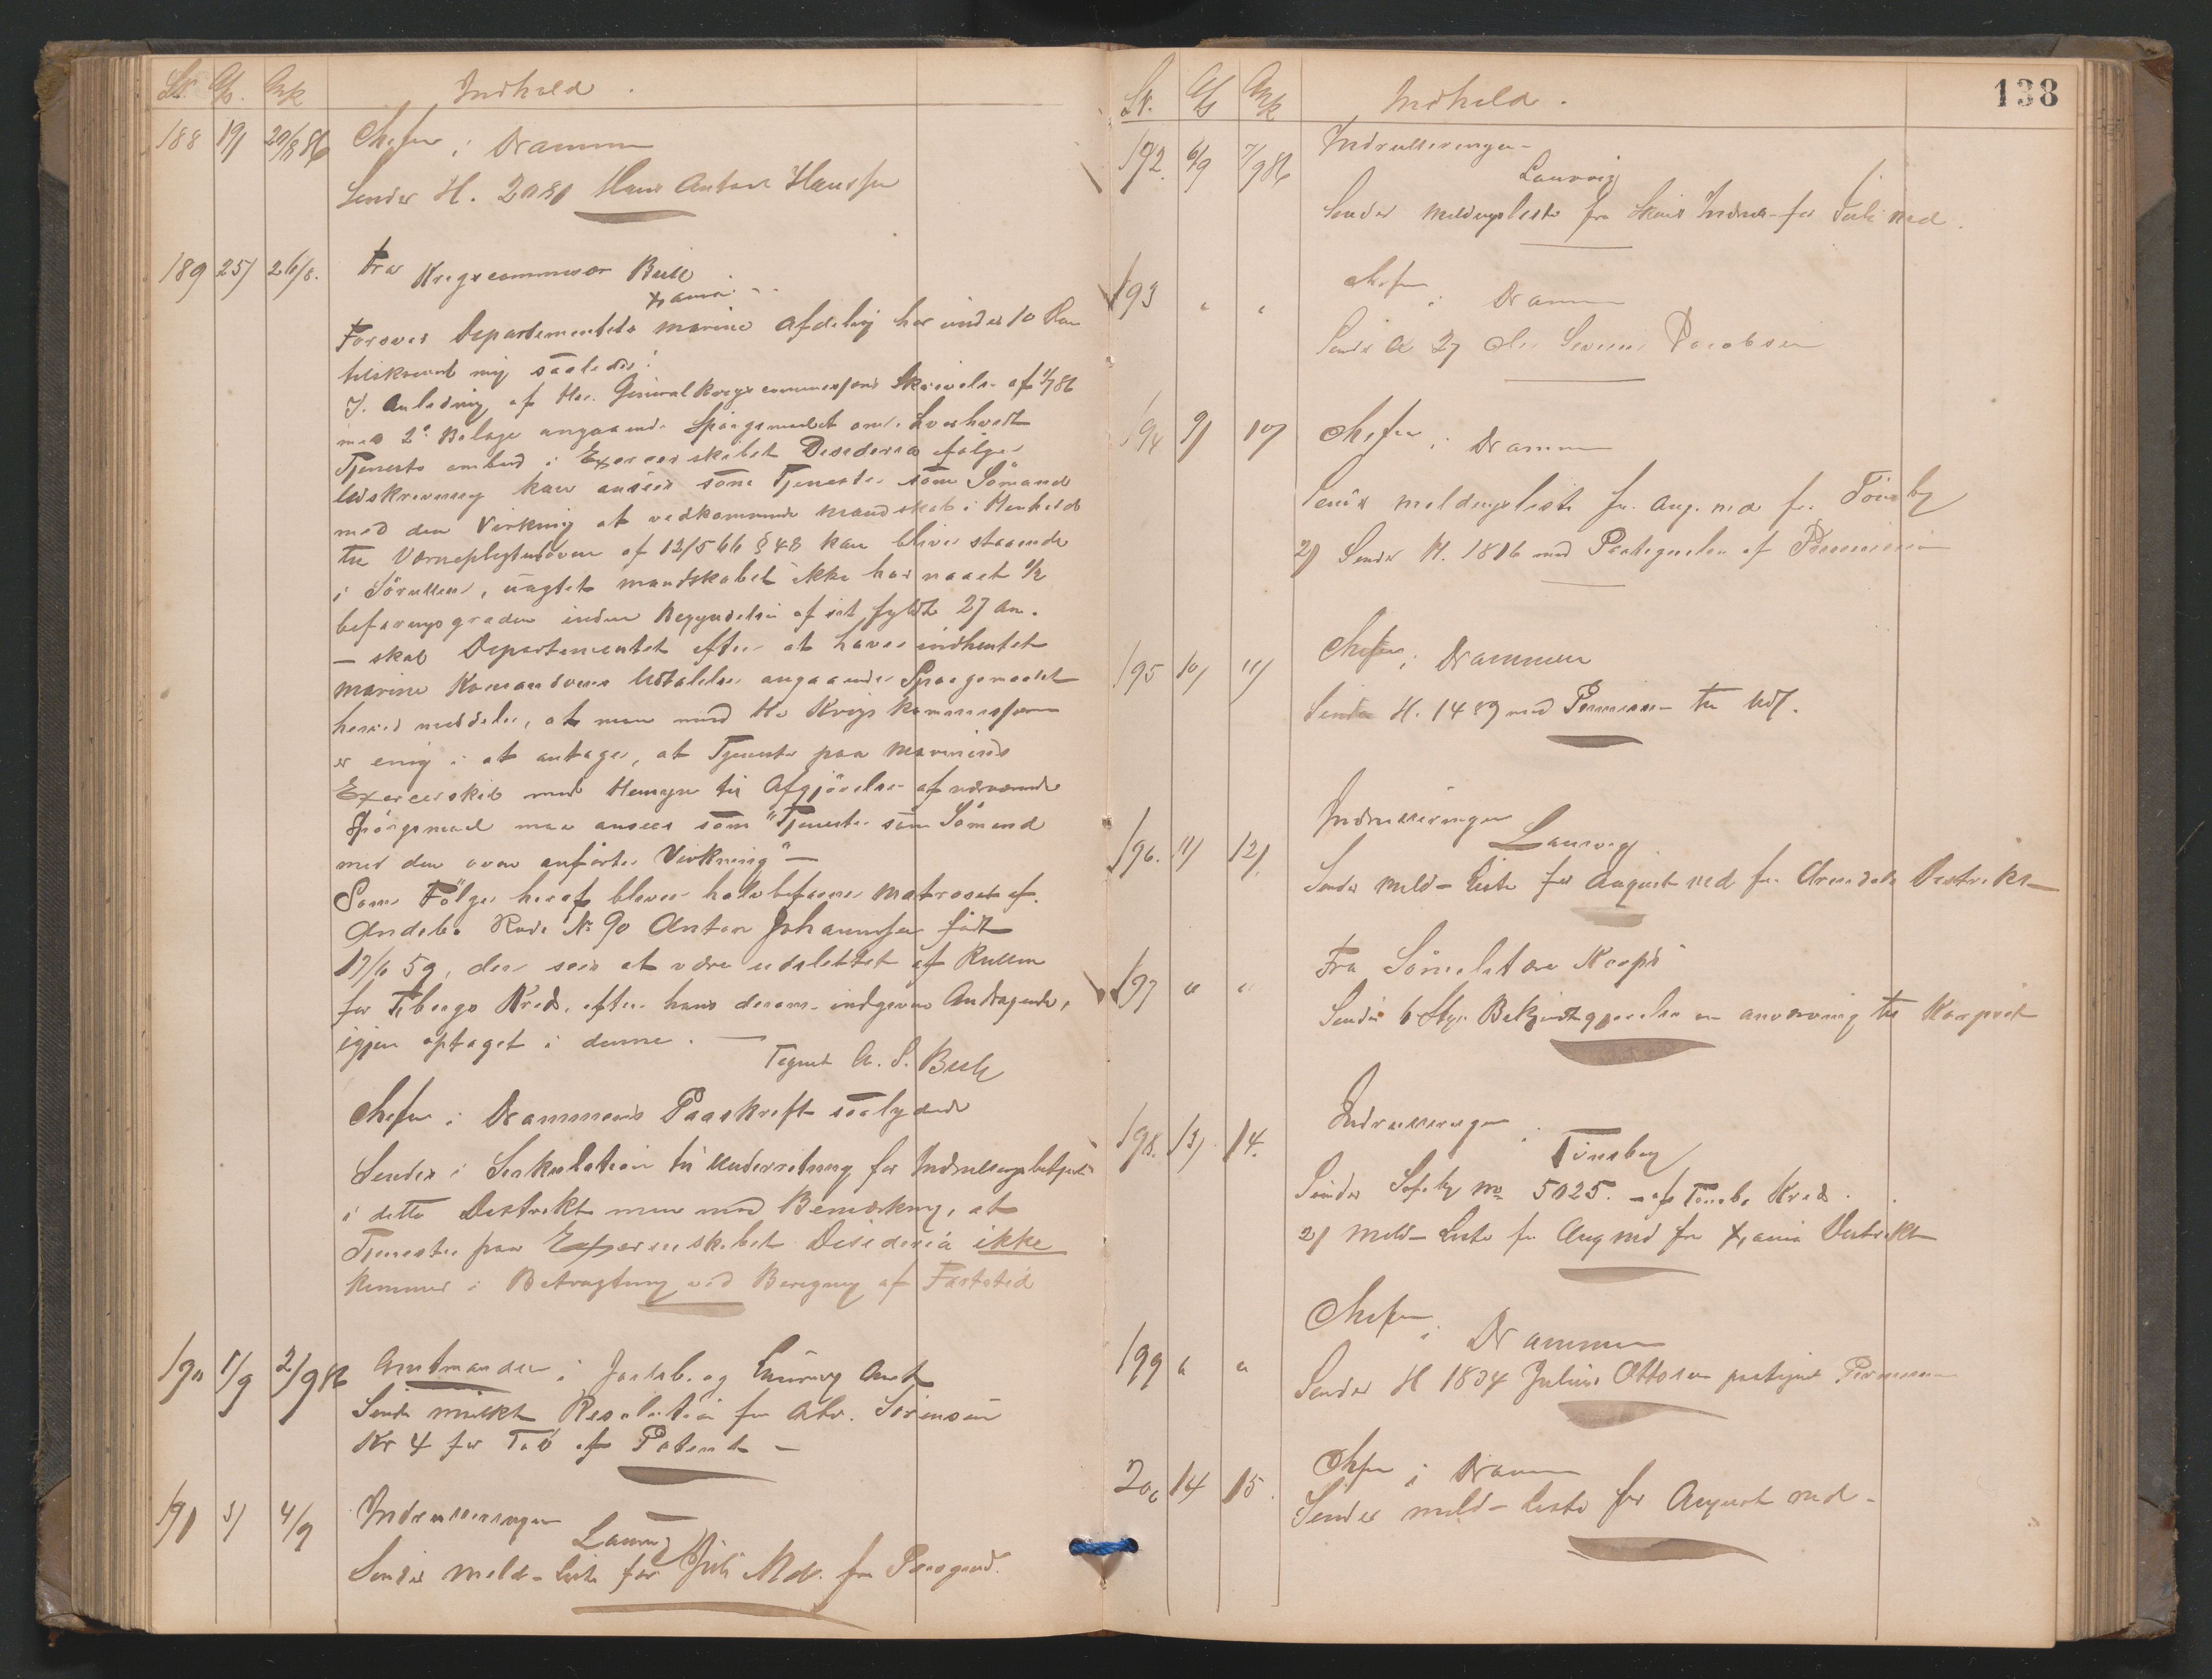 Lr. Afs. Ank Indhold.
188 19/ 20/8 86 Chefen i Drammen
Sender H. 2080 Hans Anton Hansen
189 25/ 26/8. Fra Krigscommissær Bull
Xania.
Forsvars Departementets marine Afdeling har under 10 Dms
tilskrevet mig saaledes:
I Anledning af Hr. Generalkrigscommissærens Skrivelse af 1/7 86
med 2de Bilage angaaende Spörgsmaalet om, hvorhvidt
Tjeneste ombord i Exercerskibet Desideria ifölge
Udskrivning kan ansees som Tjeneste som Sömand
med den Virkning at vedkommende Mandskab i Henhold
til Værnepligtsloven af 12/5 66 § 48 kan blive staaende
i Sörullen, uagtet mandskabet ikke har naaet 1/2
befaringsgraden inden Begyndelsen af sit fyldte 27 Aar.
— skal Departementet efter at have indhentet
marine Komandoens Udtalelse angaaende Spørgsmaalet
herved meddele, at man med Hr Krigskommissæren
er enig i at antage, at Tjeneste paa Marinens
Exercerskib med Hensyn til Afgjörelse af nærværende
Spörgsmaal maa ansees som "Tjeneste som Sömand
med den ovenanførte Virkning" —
Som Fölge heraf bliver halvbefaren Matros af
Andebo Rode No 90 Anton Johannesen födt
17/6 59, der sees at være udslettet af Rullen
for Tbergs Kreds, efter hans derom indgivne Andragende,
igjen optaget i denne. —
Tegnet A. S. Bull
Chefen i Drammens Paaskrift saalydende
Sendes i Sirkulation til Underretning for Indrulleringsbetjente
i dette Distrikt men med Bemærkning, at
Tjeneste paa Exercerskibet Desideria ikke
kommer i Betragtning ved Beregning af Fartstid
190 1/9 2/9 86 Amtmanden i Jarlsb. og Laurvig Amt
Sender Resolution for Abr. Sörensen
Kr 4 for Tab af Patent —
191 3/ 4/9 Indrulleringen
Laurvig
Sender meld-liste for Juli Md. fra Porsgrund.
138
Lr. Afs Ank Indhold.
192. 6/9 7/9 86 Indrulleringen
Laurvig
Sender meldingsliste fra Skiens Indrul- for Juli Md.
193 " " Chefen i Drammen
Sender A 27 Ole Severin Jacobsen
194 9/ 10/ Chefen i Drammen
Sender meldingsliste for Aug. Md fra Tönsberg
2/ Sender H. 1816 med Paategnelse af Permission
195 10/ 11/ Chefen i Drammen
Sender H. 1489 med Permission til Udf.
196. 11/ 12/. Indrulleringen
Laurvig
Sender meld- Liste for August Md fra Arendals Distrikt
197 " " Fra Sömilitære Korps
Sender 6 Stkr Bekjendtgjörelse om anvarving til Korpset
198. 13/ 14. Indrulleringen
Tönsberg
Sender No 5025. af Tönsb. Kreds.
2/ Meld- Liste for Aug Md fra Xania Distrikt
199 " " Chefen i Drammen
Sender H 1834 Julius Ottosen paategnet Permission
200 14 15. Chefen i Drammen
Sender meld- Liste for August Md-